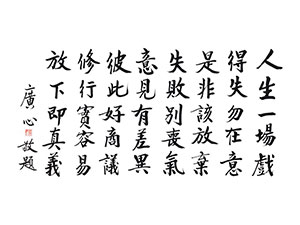 人生一場戲
得失勿在意
是非該放棄
失敗別喪氣
意見有差異
彼此好商議
修行實容易
放下即真義
廣心敬題